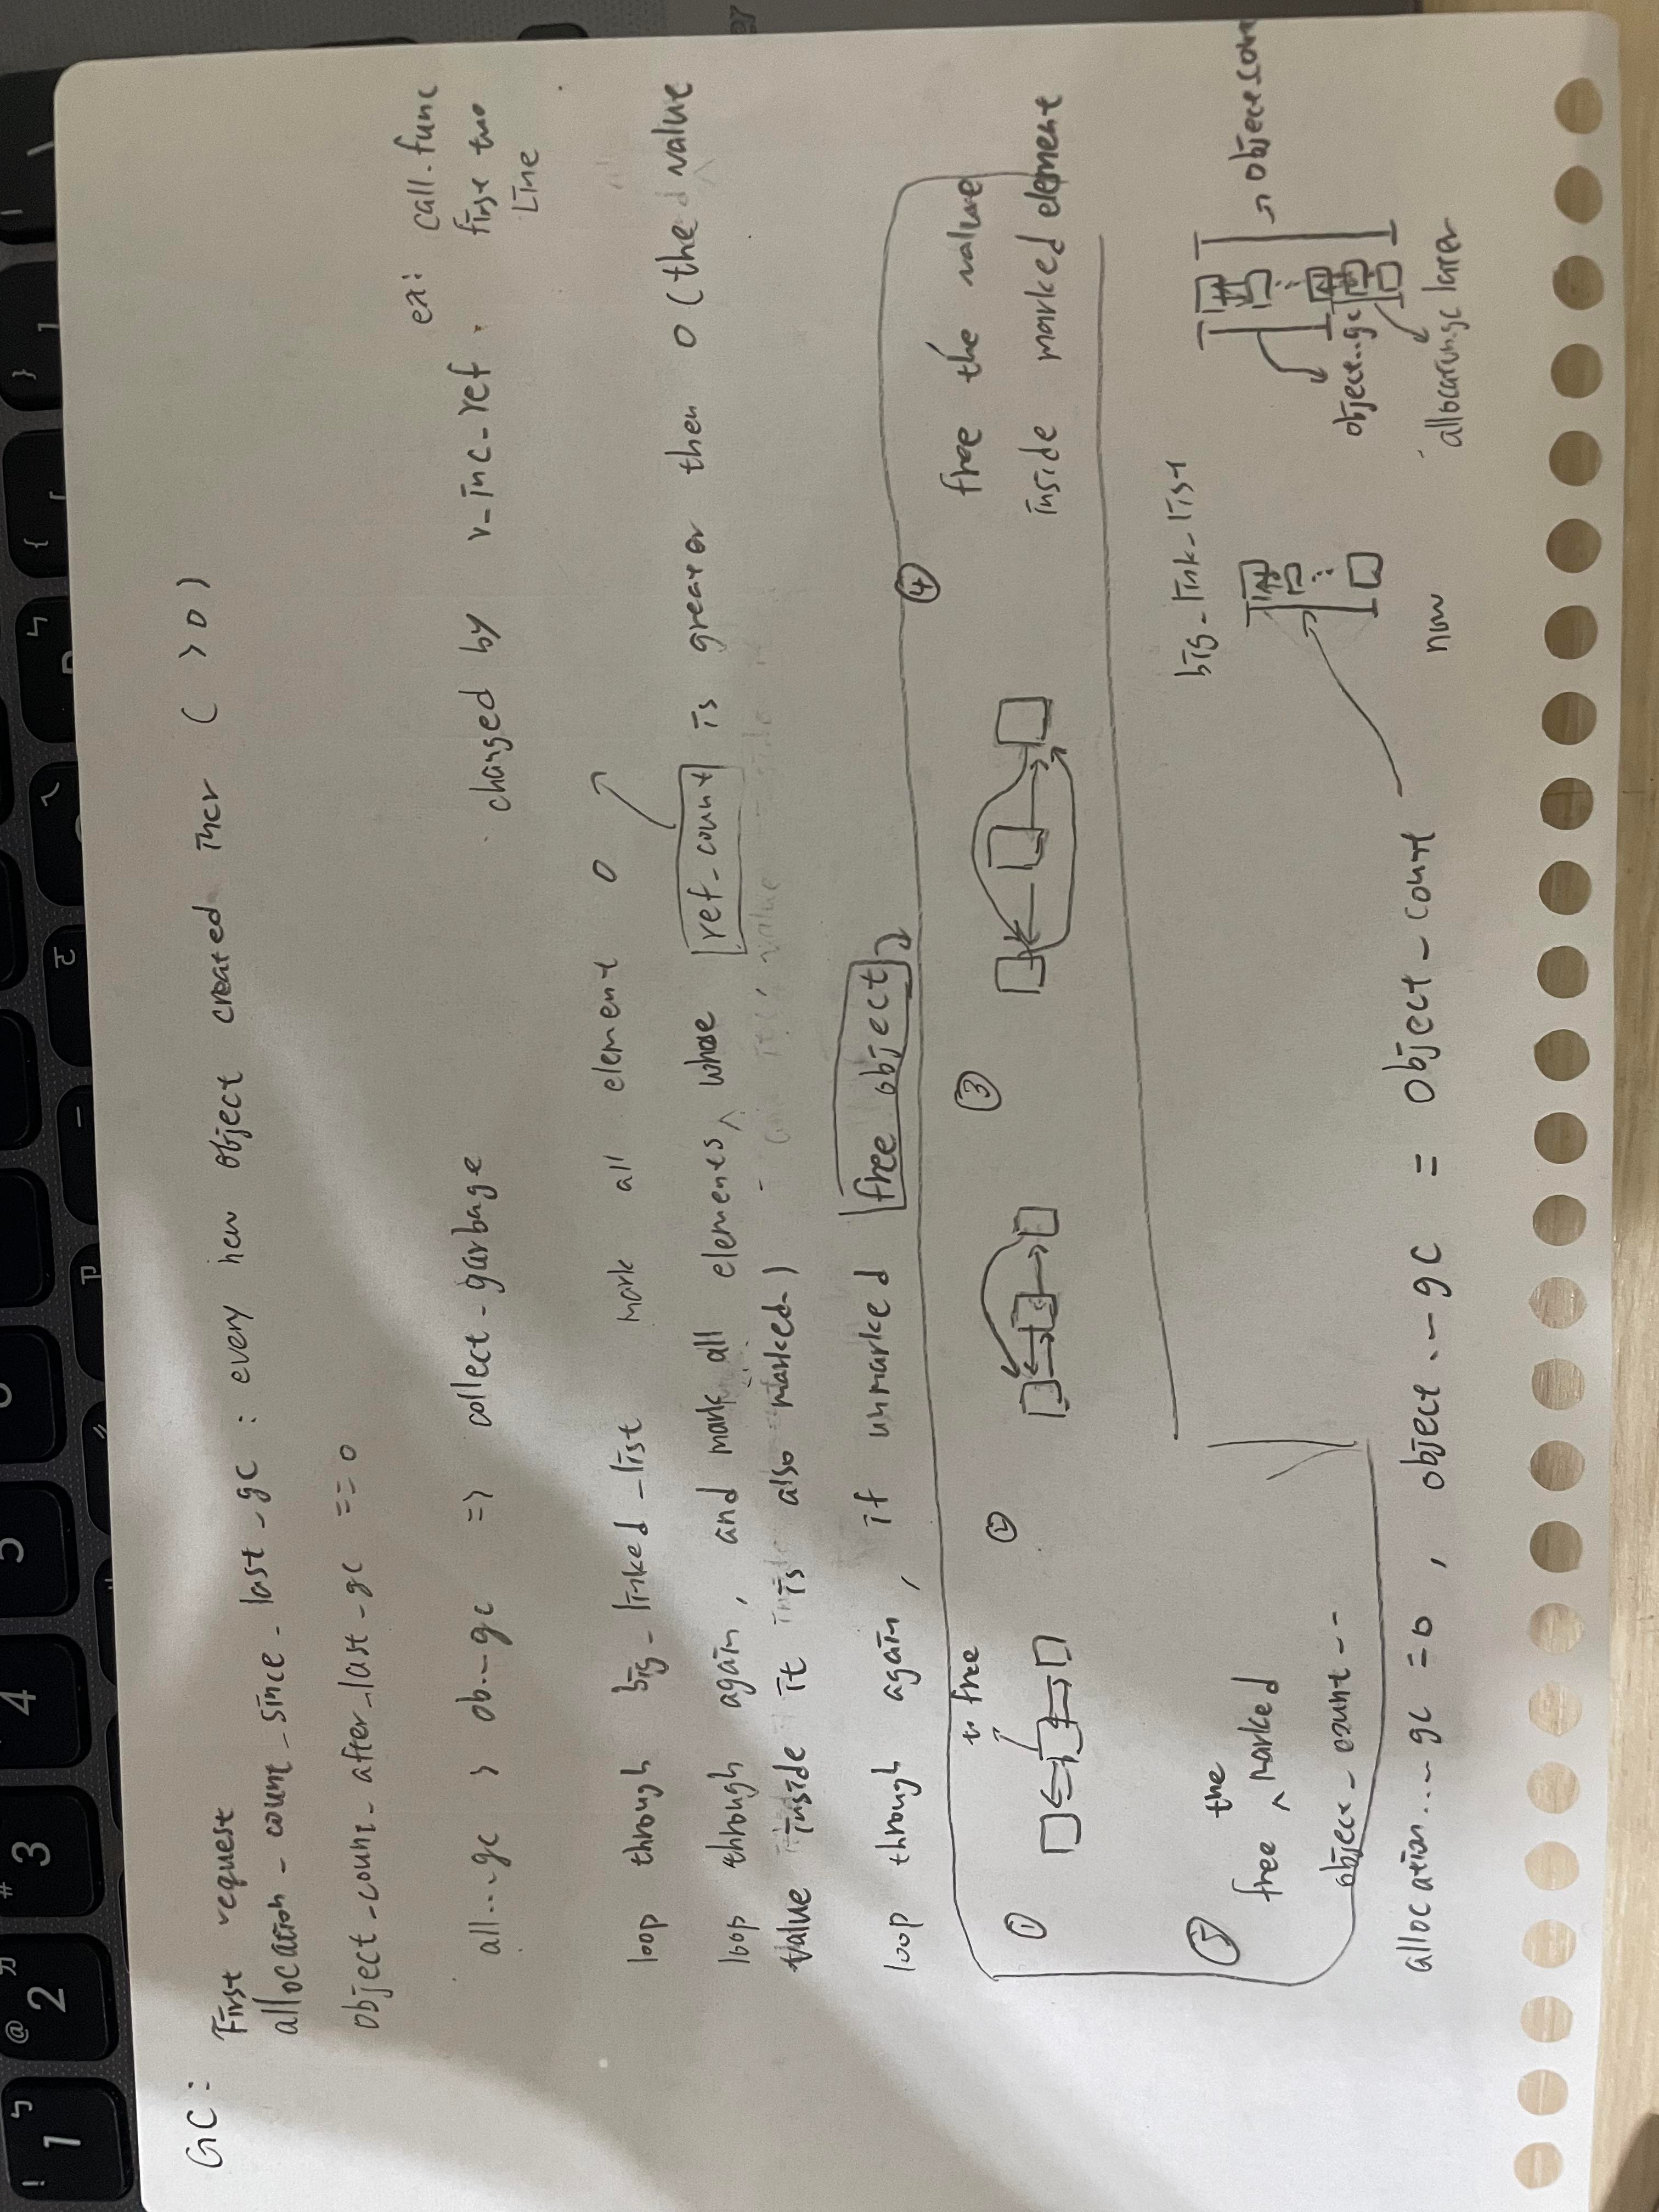 ! 1 ㄅ
@ 2 ㄉ
# 3
4
5
6
{ [
} ]
| \
ㄗ
ㄧ
ㄛ
ㄟ
ㄣ
P
GC:
First request
allocation_count_since_last_gc : every new object created incr ( > 0 )
object_count_after_last_gc == 0
all...gc > ob...gc => collect_garbage
changed by v_inc_ref .
ex: call.func
first two
Line
loop through big_linked_list mark all element 0
loop through again, and mark all elements ^ whose ref_count is greater then 0 (the value
value inside it is also marked.)
loop through again, if unmarked free object
① to free
②
③
④ free the value
inside marked element
⑤ free ^ the marked
object_count --
allocation...gc = 0 , object...gc = object_count
big_link_list
now
object...gc
object_count
allocation.gc later